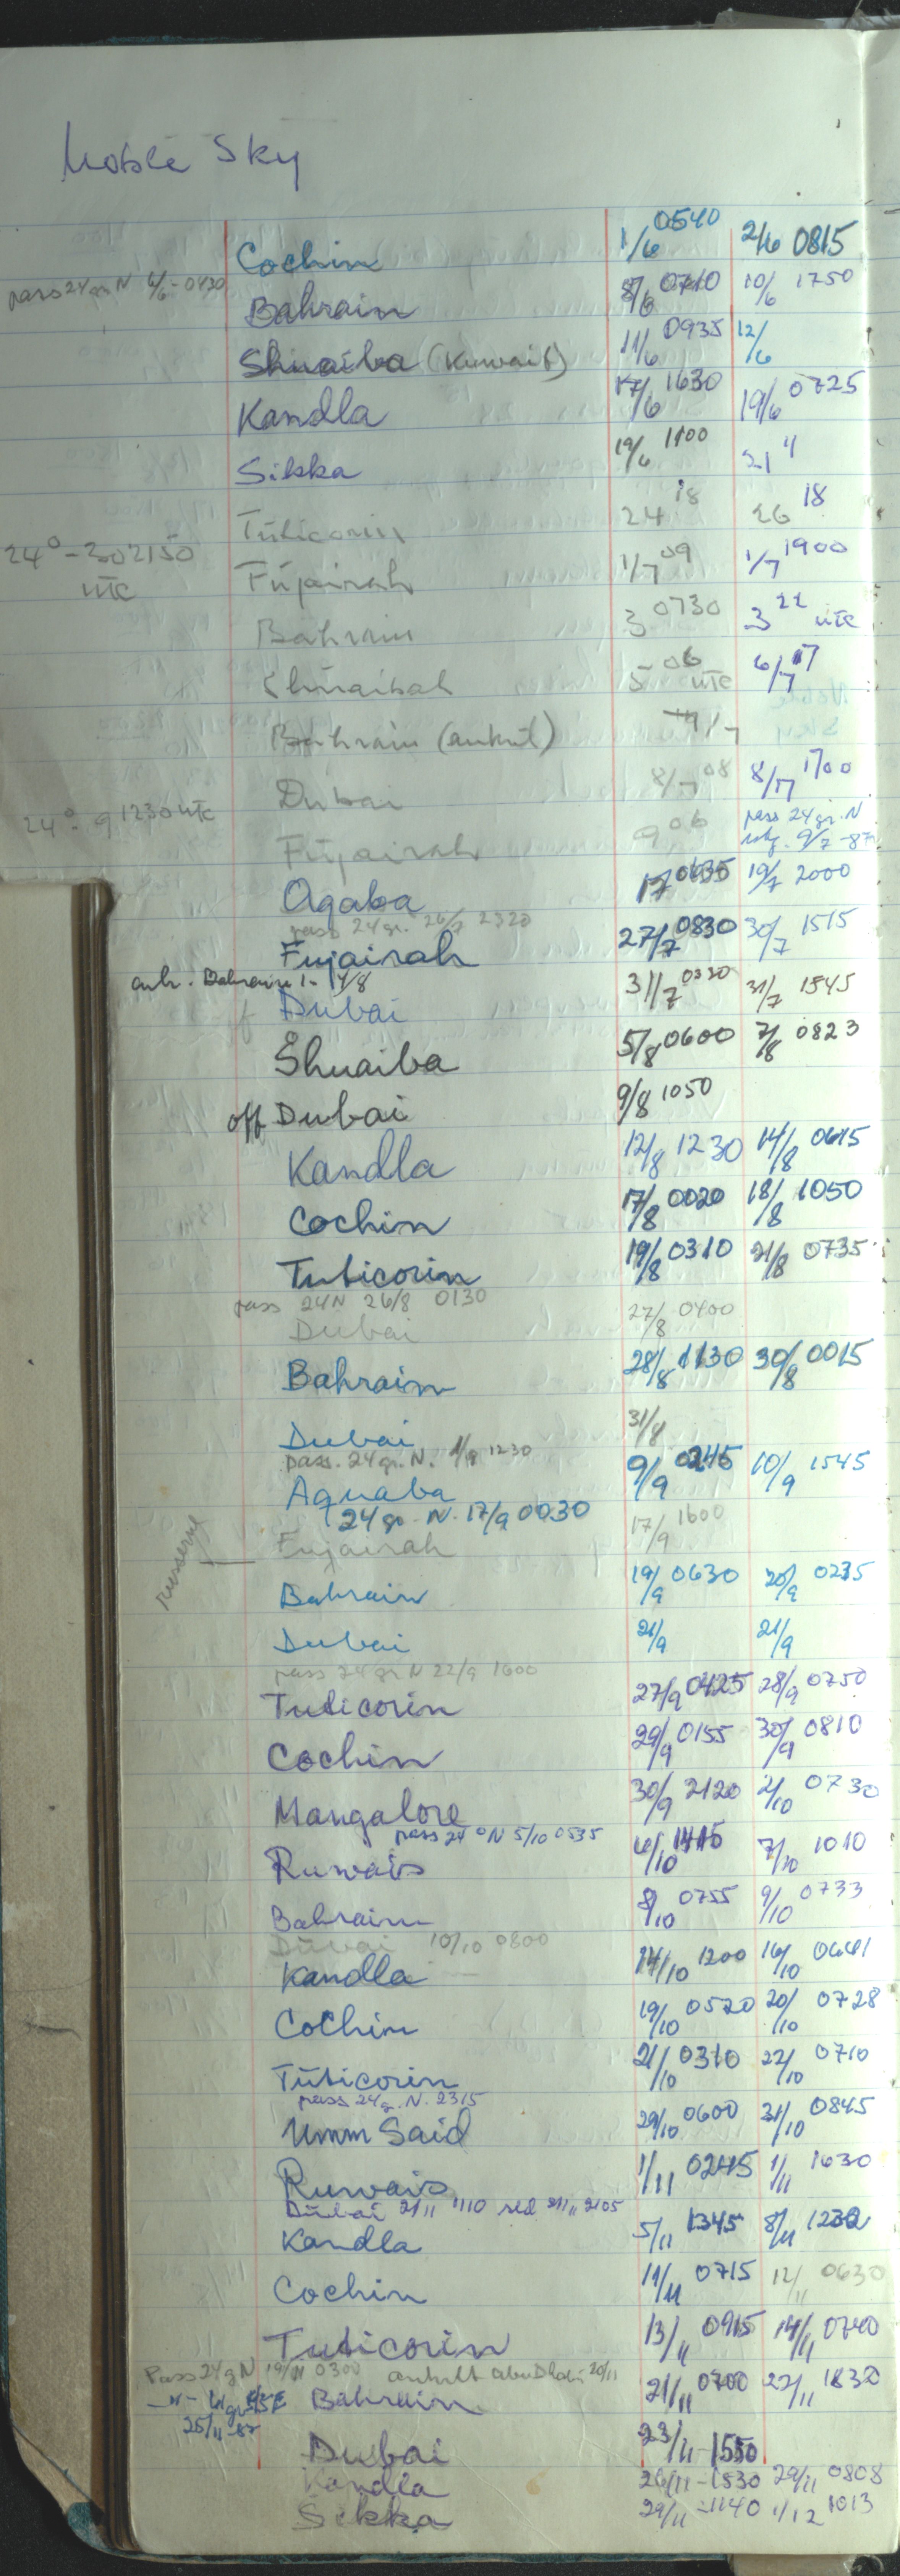 Noble Sky
Cochin 1/6 0540 2/6 0815
pass 24 gr N 6/6 - 0430
Bahrain 8/6 0710 10/6 1750
Shuaiba (Kuwait) 11/6 0935 12/6
Kandla 17/6 1630 19/6 0725
Sikka 19/6 1100 21 4
Tuticorin 24 18 26 18
24° - 30 2150 utc
Fujairah 1/7 09 1/7 1900
Bahrain 3 0730 3 22 utc
Shuaibah 5 06 utc 6/7 17
Bahrain (ankret) /7
Dubai 8/7 08 8/7 1700
24° - 9 1230 utc
Fujairah 9 06 pass 24 gr. N 9/7 - 87
Aqaba 17 0635 19/7 2000
pass 24 gr. 26/7 2320
Fujairah 27/7 0830 30/7 1515
ank. Bahrain 1 - 14/8
Dubai 31/7 0330 31/7 1545
Shuaiba 5/8 0600 7/8 0823
off Dubai 9/8 1050
Kandla 12/8 1230 14/8 0615
Cochin 17/8 0020 18/8 1050
Tuticorin 19/8 0310 21/8 0735
pass 24N 26/8 0130
Dubai 27/8 0400
Bahrain 28/8 1130 30/8 0015
Dubai 31/8
pass. 24 gr. N. 1/9 1230
Aquaba 9/9 0245 10/9 1545
24 gr N. 17/9 0030
Fujairah 17/9 1600
Bahrain 19/9 0630 20/9 0235
Dubai 21/9 21/9
pass 24 gr N 22/9 1600
Tuticorin 27/9 0425 28/9 0750
Cochin 29/9 0155 30/9 0810
Mangalore 30/9 2120 2/10 0730
pass 24° N 5/10 0535
Ruwais 6/10 1415 7/10 1010
Bahrain 8/10 0755 9/10 0733
Dubai 10/10 0800
Kandla 14/10 1200 16/10 0641
Cochin 19/10 0520 20/10 0728
Tuticorin 21/10 0310 22/10 0710
pass 24 g. N. 2315
Umm Said 29/10 0600 31/10 0845
Ruwais 1/11 0245 1/11 1630
Dubai 2/11 1110 sld 2/11 2105
Kandla 5/11 1345 8/11 1232
Cochin 11/11 0715 12/11 0630
Tuticorin 13/11 0915 14/11 0740
Pass 24 g N 19/11 0300 ankret Abu Dhabi 20/11
Bahrain 21/11 0700 22/11 1830
25/11 - 87
Dubai 23/11 - 1550
Kandla 26/11 - 1830 29/11 0808
Sikka 29/11 - 1140 1/12 1013